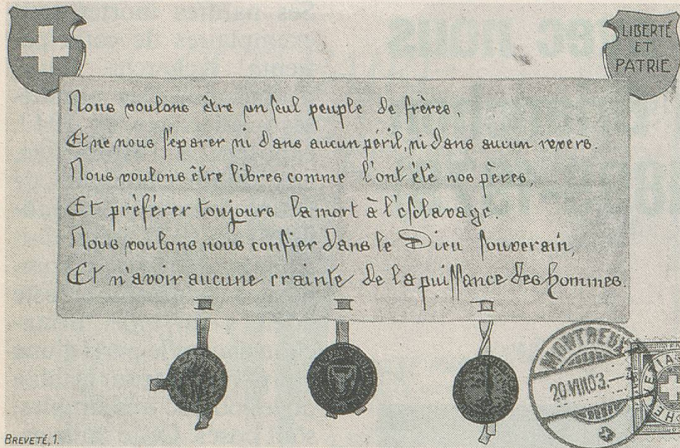 LIBERTÉ
ET
PATRIE
Nous voulons être un seul peuple de frères,
Et ne nous séparer ni dans aucun péril, ni dans aucun revers.
Nous voulons être libres comme l'ont été nos pères,
Et préférer toujours la mort à l'esclavage.
Nous voulons nous confier dans le Dieu souverain,
Et n'avoir aucune crainte de la puissance des hommes.
MONTREUX
20.VIII.03.—
BREVETÉ, 1.